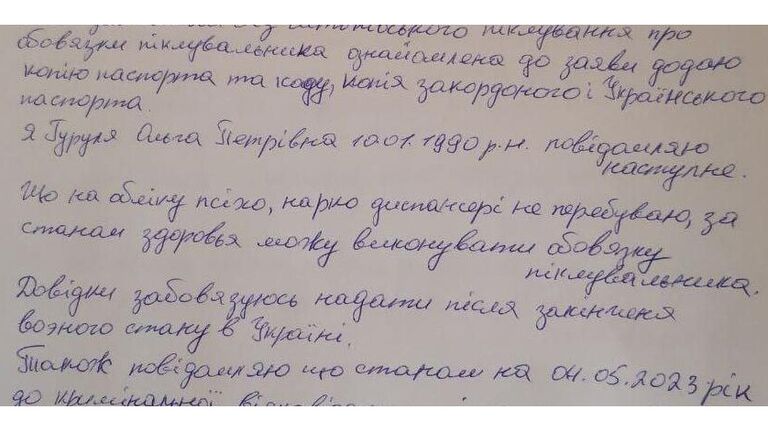 піклування про
обовязки піклувальника ознайомлена до заяви додаю
копію паспорта та коду, копія закордоного і Українського
паспорта.
Я Гуруля Ольга Петрівна 10.01.1990 р.н. повідамляю
наступне.
Що на обліку психо, нарко диспансері не перебуваю, за
станам здоровья можу виконувати обовязку
піклувальника.
Довідки забовязуюсь надати після закінченя
воэного стану в Україні.
Також повідамляю що станам на 04.05.2023 рік
до кримінальної